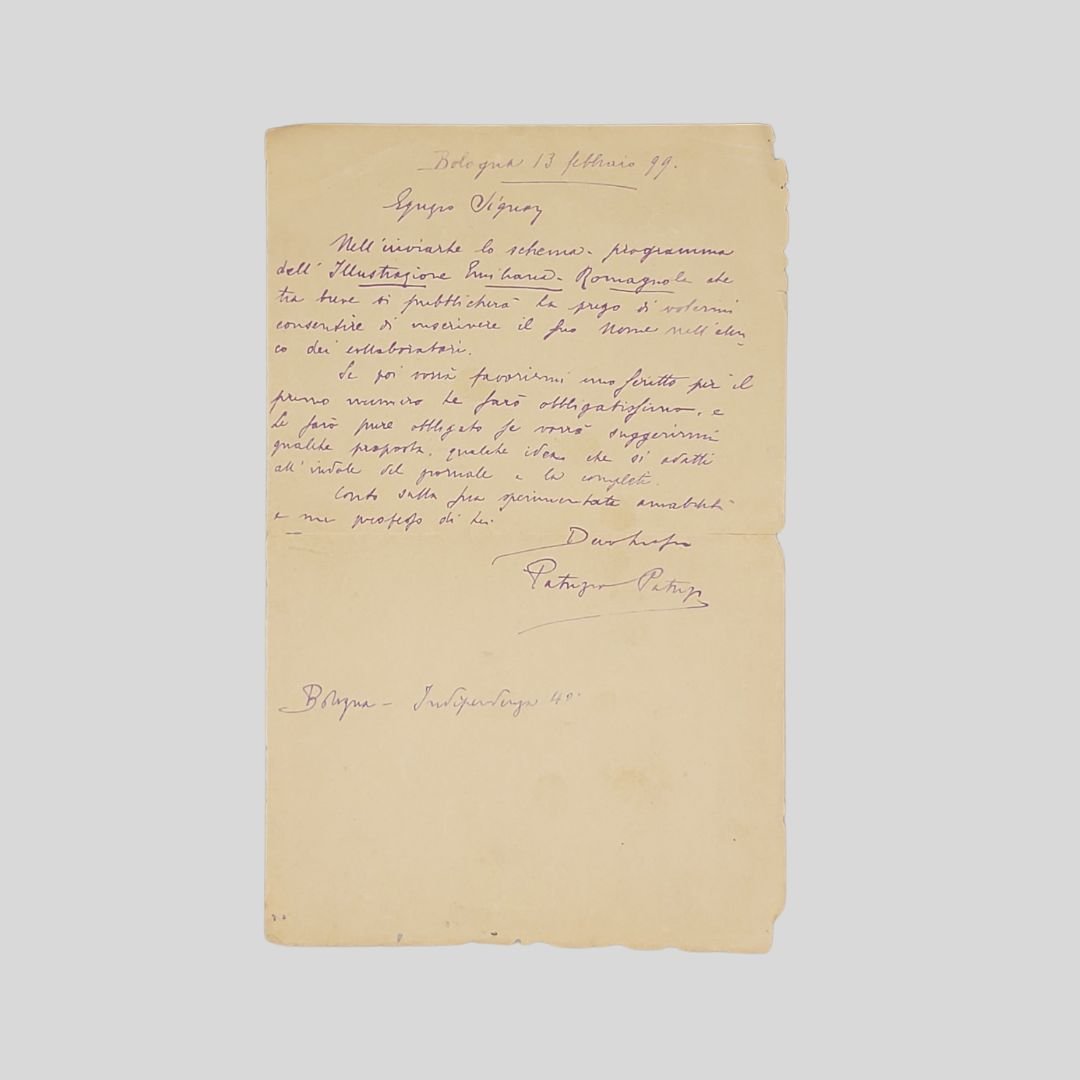 Bologna 13 febbraio 99.
Egregio Signore
Nell'inviarle lo schema-programma
dell'Illustrazione Emiliana-Romagnola che
tra breve si pubblicherà la prego di volermi
consentire di inscrivere il suo nome nell'elen
co dei collaboratori.
Se poi vorrà favorirmi uno scritto per il
primo numero Le sarò obbligatissimo, e
Le sarò pure obbligato se vorrà suggerirmi
qualche proposta, qualche idea che si adatti
all'indole del giornale e la completi.
Conto sulla sua sperimentata amabilità
e me professo di Lei
Patrizio Patrizi
Bologna - Indipendenza 40